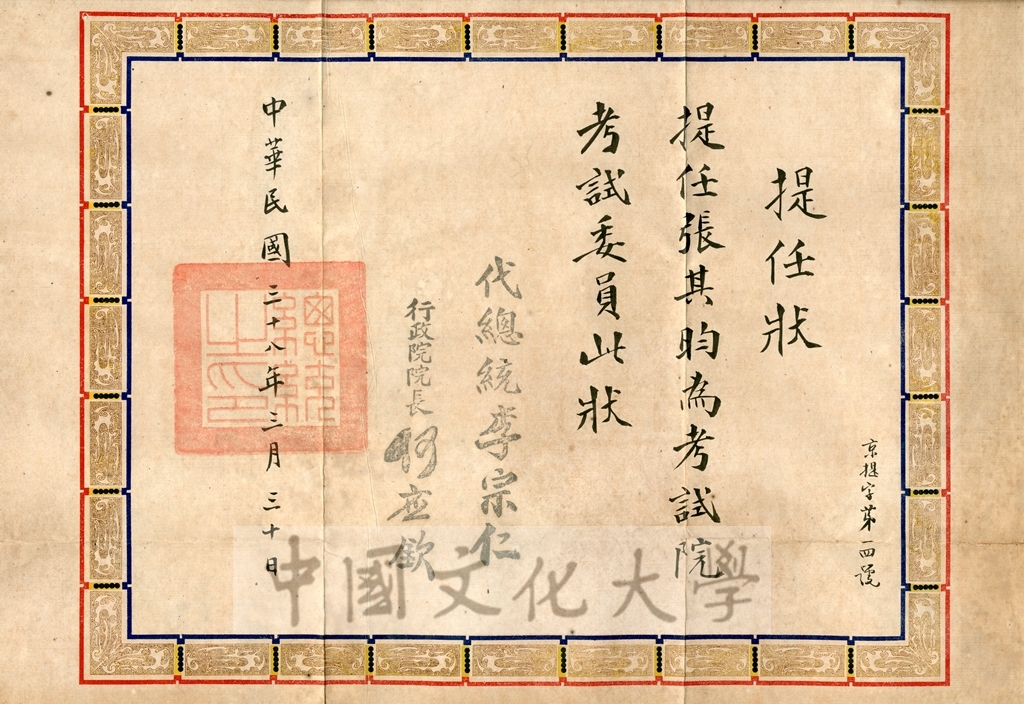 提任狀
京提字第一四號
提任張其昀為考試院
考試委員此狀
代總統李宗仁
行政院院長何應欽
中華民國三十八年三月三十日
總統之印
中國文化大學